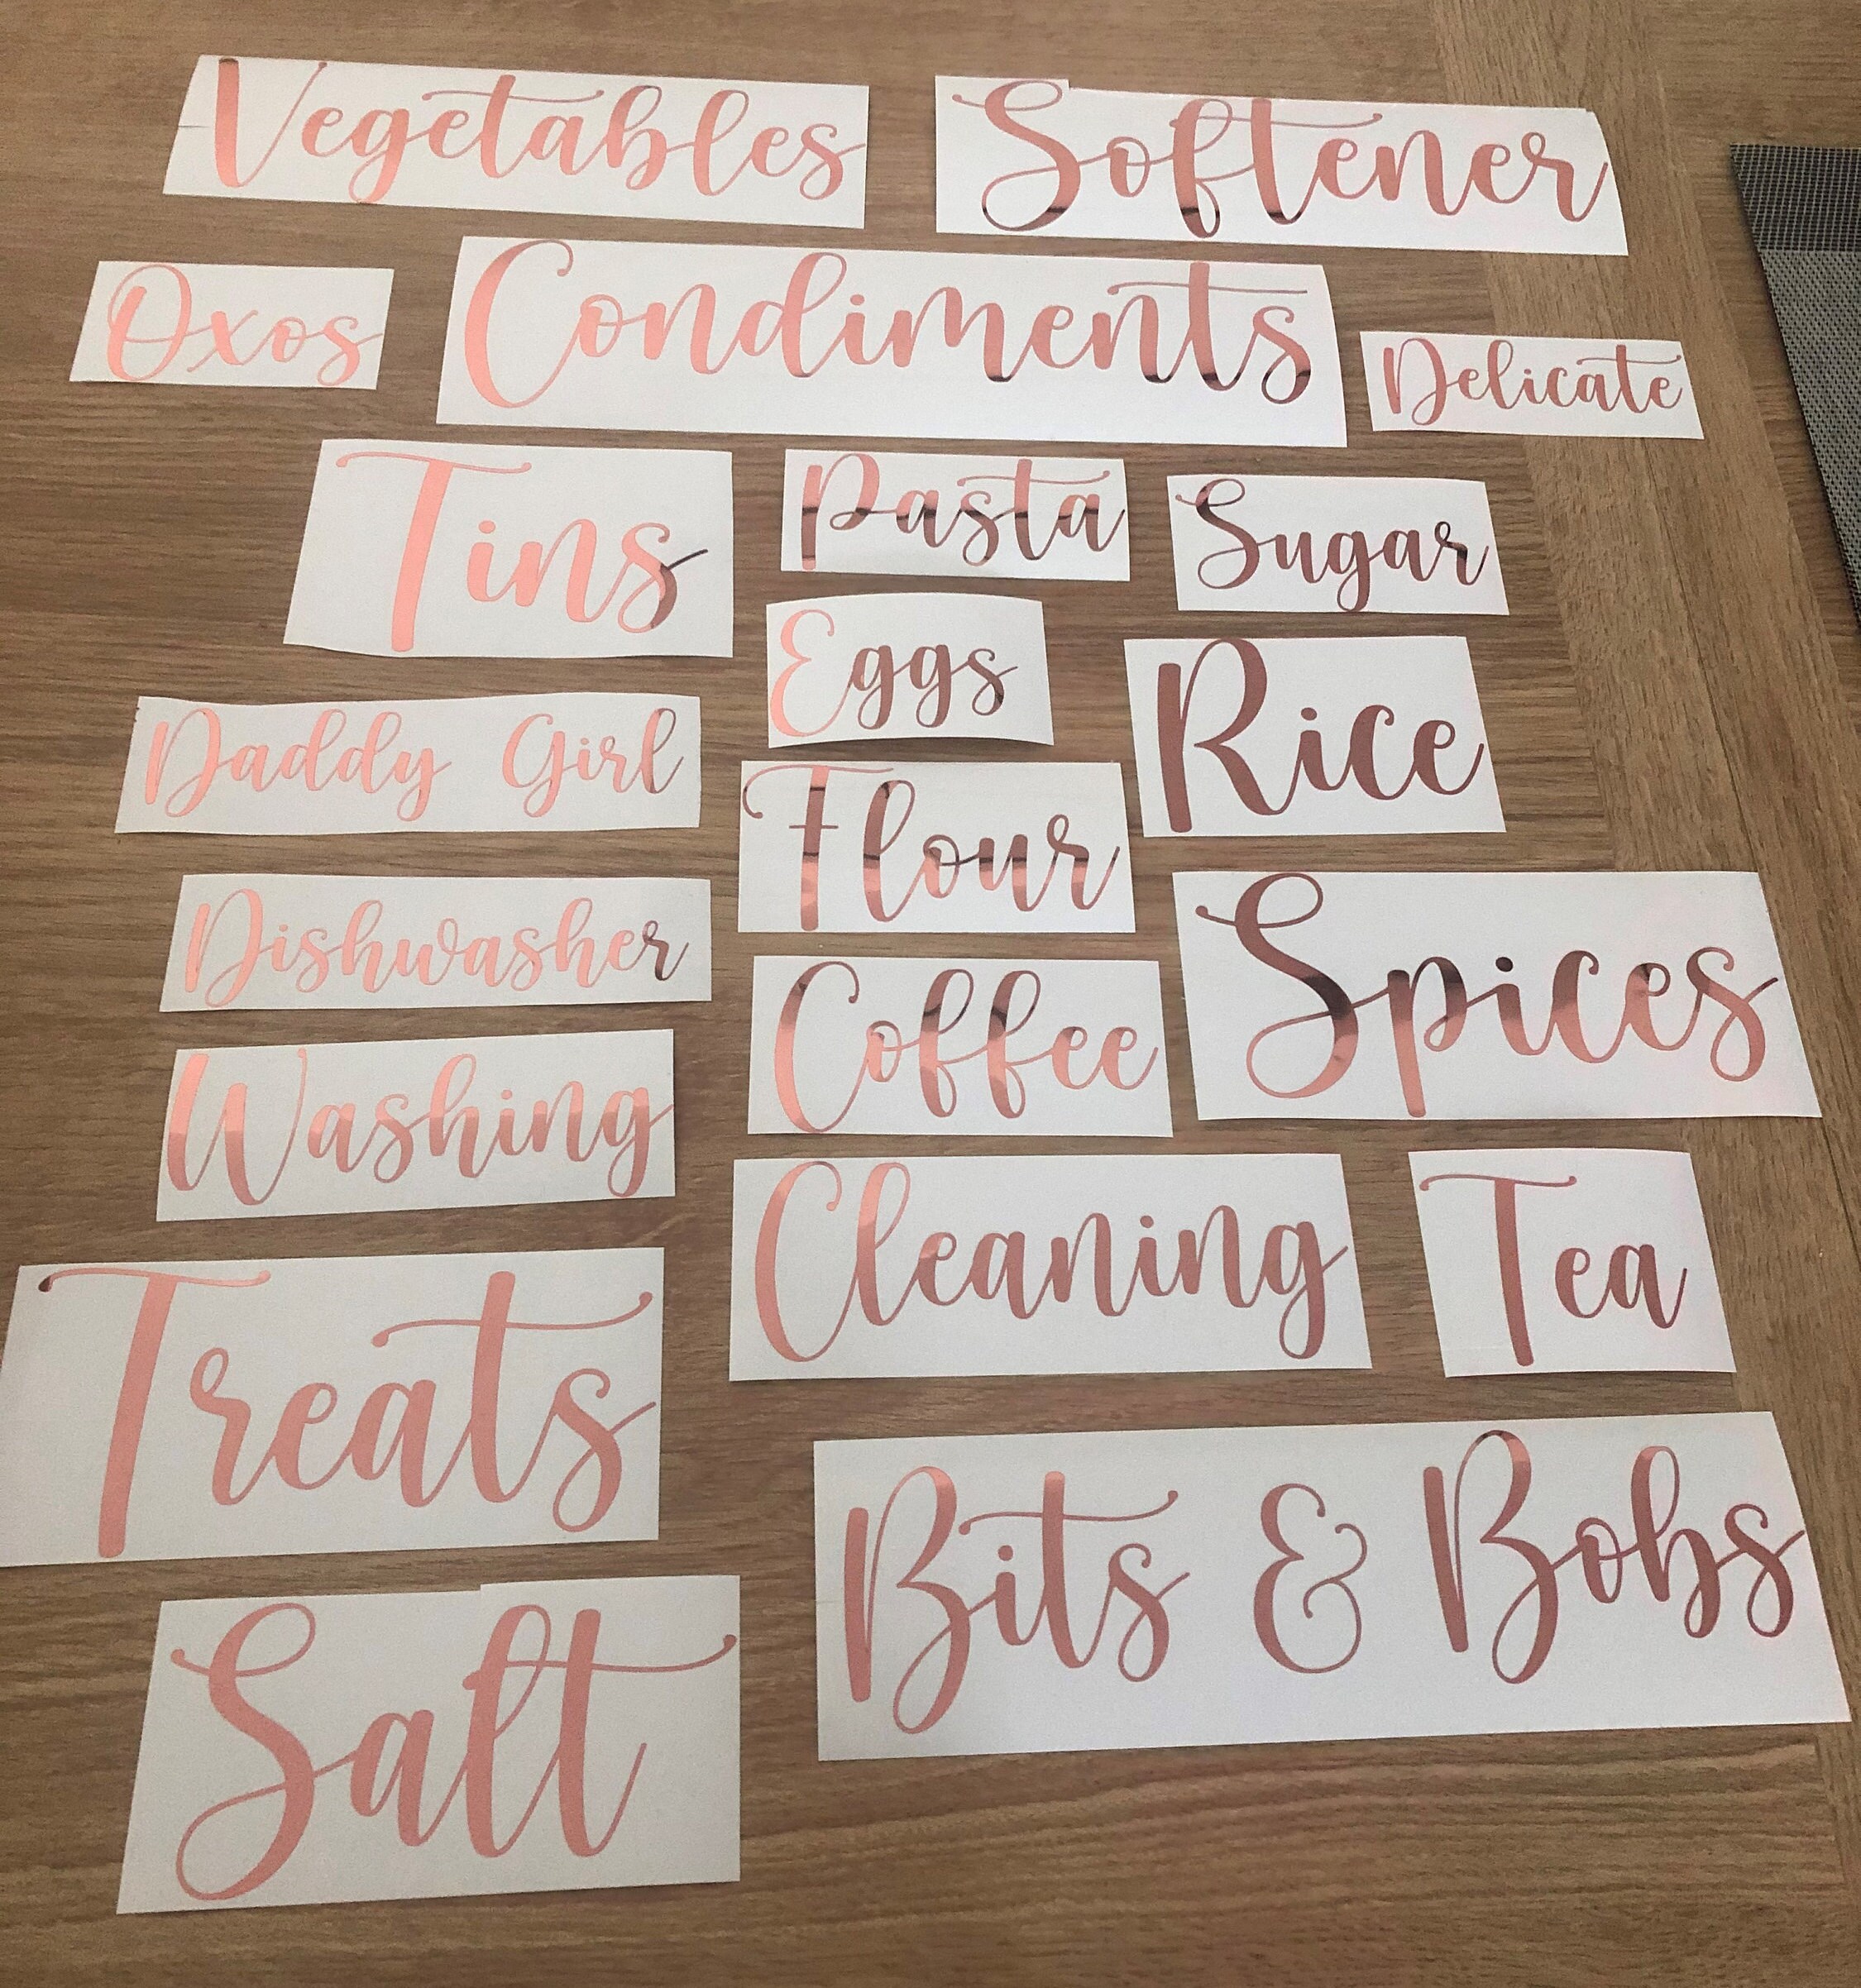 Vegetables
Softener
Oxos
Condiments
Delicate
Tins
Pasta
Sugar
Eggs
Rice
Daddy Girl
Flour
Dishwasher
Coffee
Spices
Washing
Cleaning
Tea
Treats
Bits & Bobs
Salt